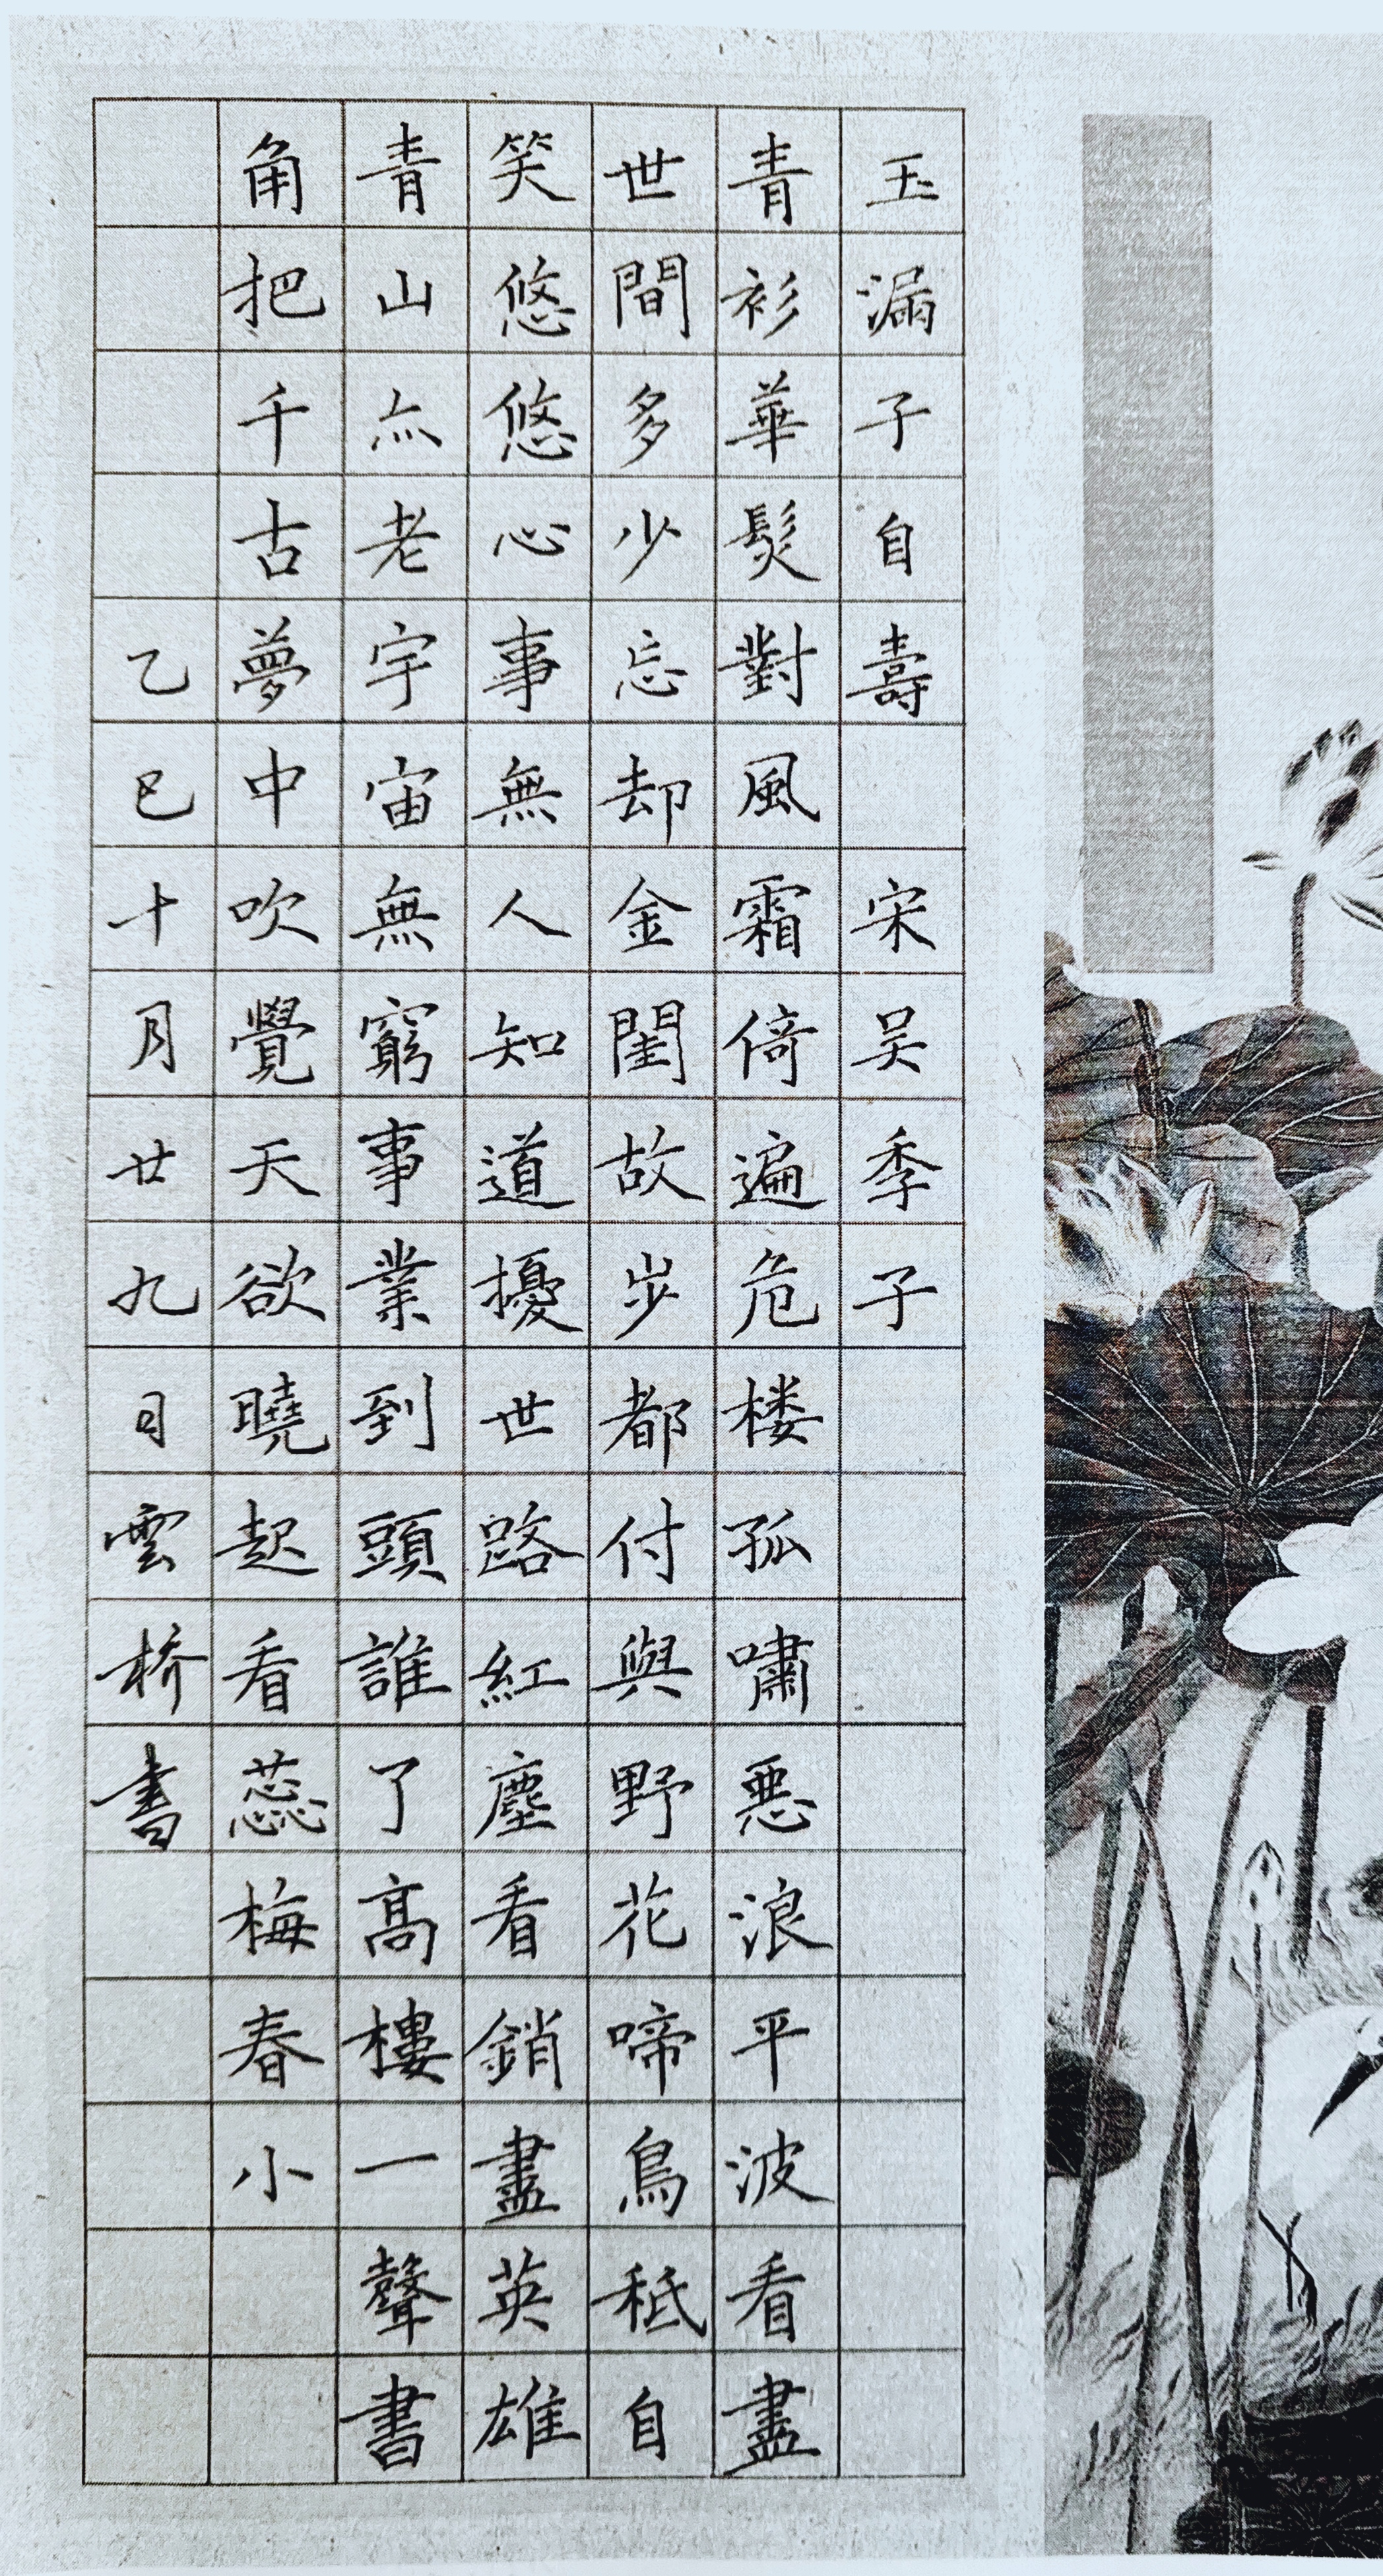 玉漏子自壽 宋吴季子
青衫華髮對風霜倚遍危楼孤嘯惡浪平波看盡
世間多少忘却金閨故步都付與野花啼鳥秪自
笑悠悠心事無人知道擾世路紅塵看銷盡英雄
青山亦老宇宙無窮事業到頭誰了高樓一聲書
角把千古夢中吹覺天欲曉起看蕊梅春小
乙巳十月廿九日雲桥書